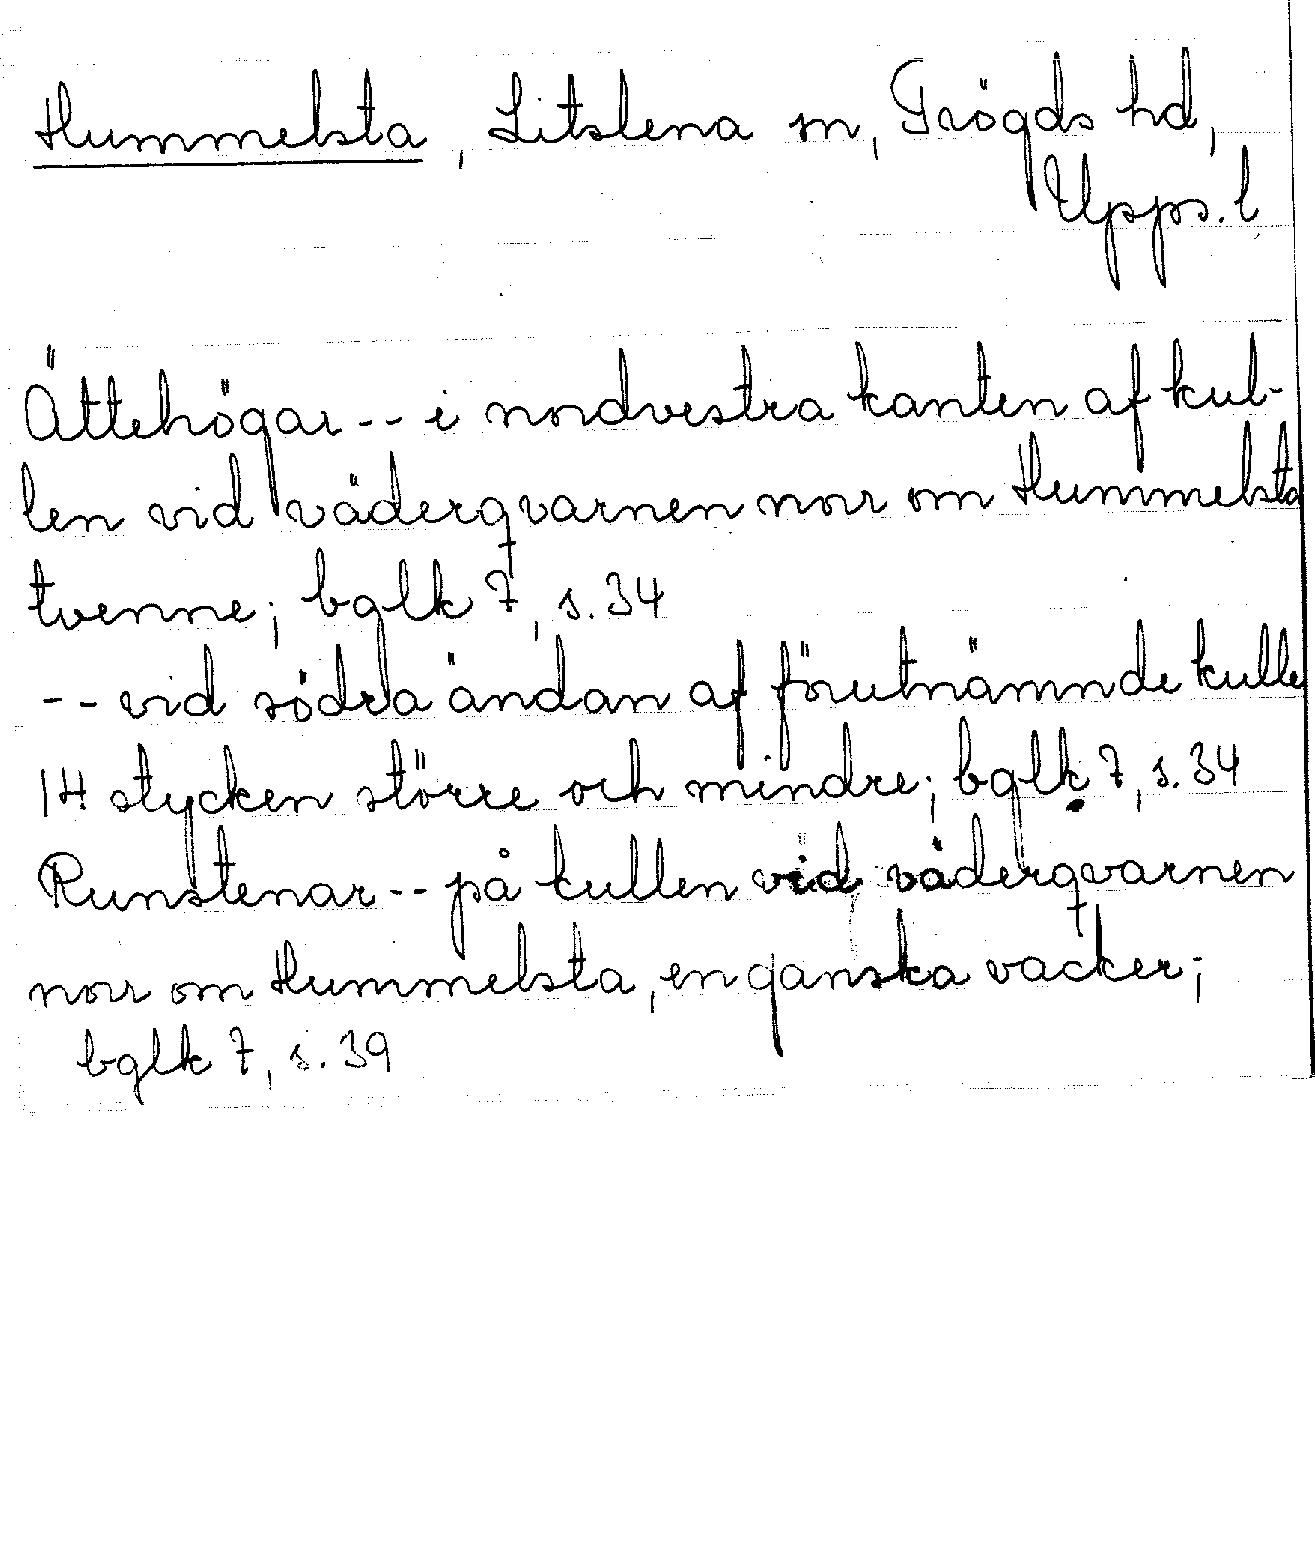 Hummelsta, Litslena sn, Trögds hd,
Upps. l
Ättehögar -- i nordvestra kanten af kul-
len vid väderqvarnen norr om Hummelsta
tvenne; bglk 7, s. 34
-- vid södra ändan af förutnämnde kulle
14 stycken större och mindre; bglk 7, s. 34
Runstenar -- på kullen vid väderqvarnen
norr om Hummelsta, en ganska vacker;
bglk 7, s. 39